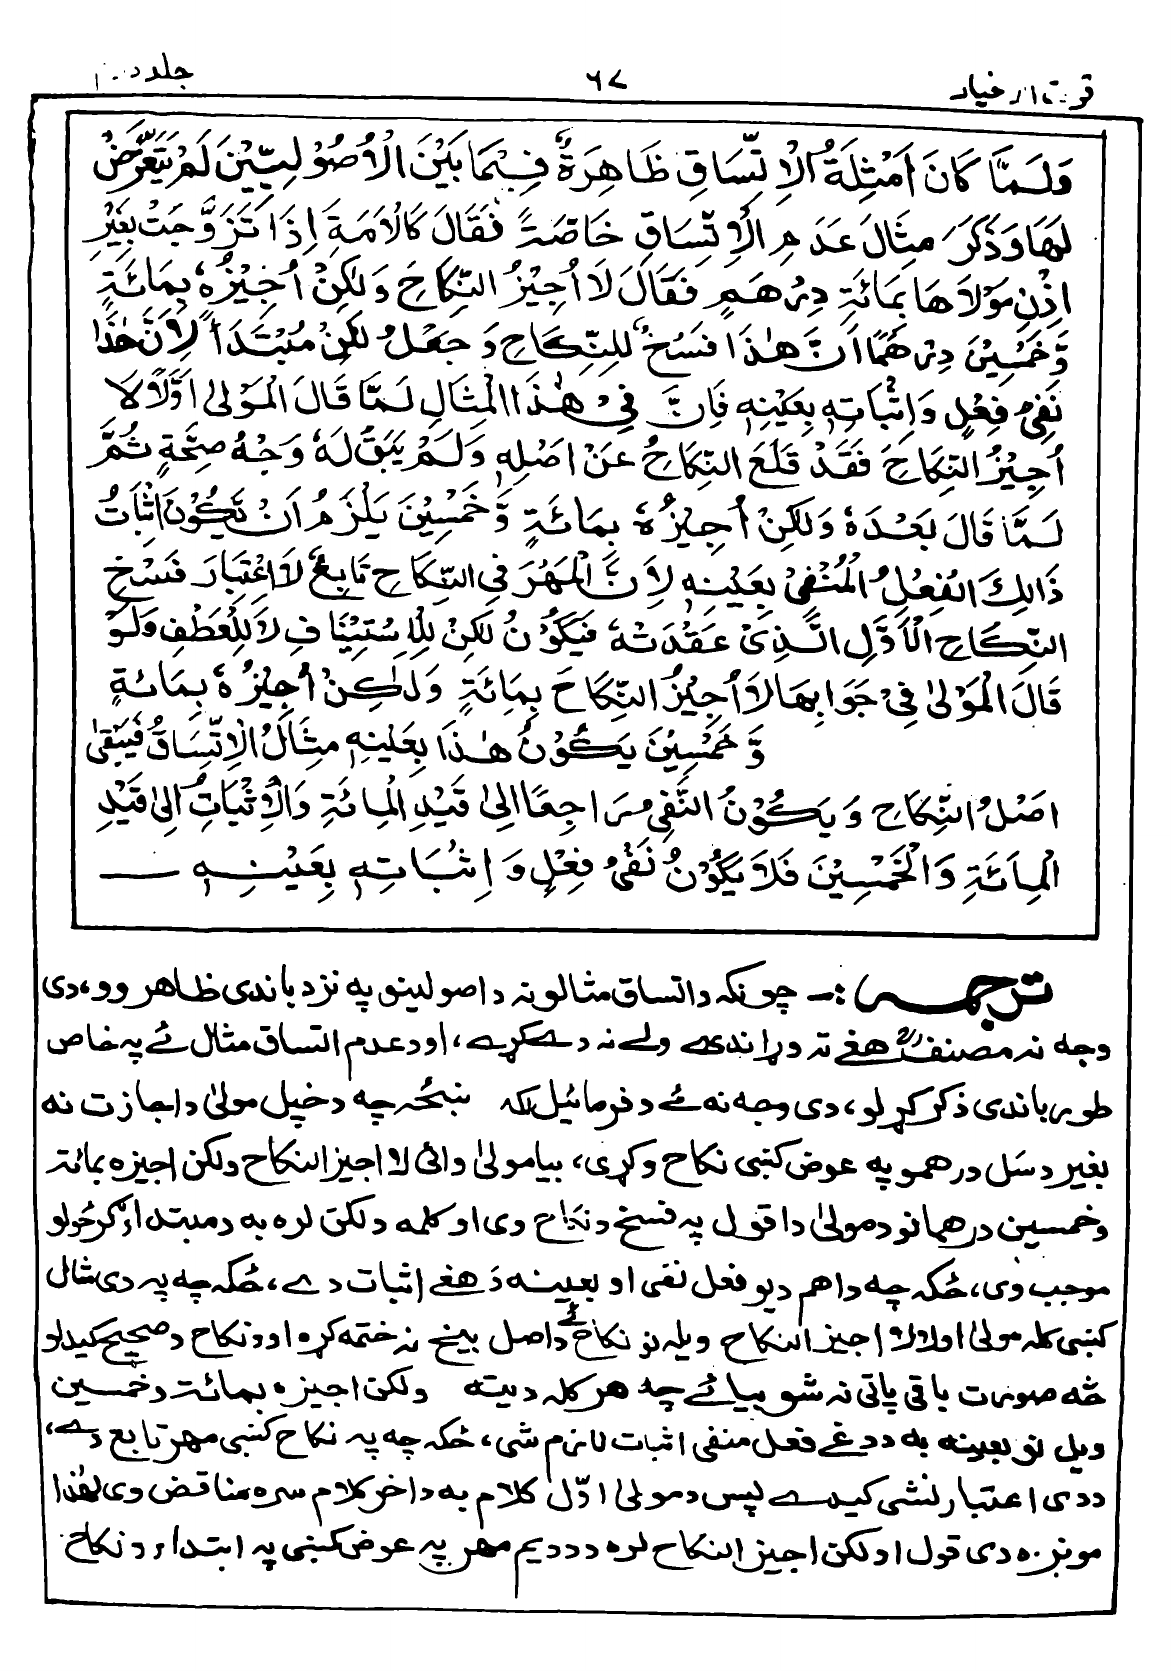 قوت الاخیار ۶۷ جلد
وَلَمَّا كَانَ اَمْثِلَةُ الْاِتِّسَاقِ ظَاهِرَةً فِيْمَا بَيْنَ الْاُصُوْلِيِّيْنَ لَمْ يَتَعَرَّضْ
لَهَا وَذَكَرَ مِثَالَ عَدَمِ الْاِتِّسَاقِ خَاصَّةً فَقَالَ كَالْاَمَةِ اِذَا تَزَوَّجَتْ بِغَيْرِ
اِذْنِ مَوْلَاهَا بِمِائَةِ دِرْهَمٍ فَقَالَ لَا اُجِيْزُ النِّكَاحَ وَلٰكِنْ اُجِيْزُهٗ بِمِائَةٍ
وَّخَمْسِيْنَ دِرْهَمًا اَنَّ هٰذَا فَسْخٌ لِلنِّكَاحِ وَجَعْلُ لٰكِنْ مُبْتَدَأً لِاَنَّ هٰذَا
نَفْیُ فِعْلٍ وَاِثْبَاتِهٖ بِعَيْنِهٖ فَاِنَّ فِیْ هٰذَا الْمِثَالِ لَمَّا قَالَ الْمَوْلٰى اَوَّلًا لَا
اُجِيْزُ النِّكَاحَ فَقَدْ قَلَعَ النِّكَاحُ عَنْ اَصْلِهٖ وَلَمْ يَبْقَ لَهٗ وَجْهُ صِحَّةٍ ثُمَّ
لَمَّا قَالَ بَعْدَهٗ وَلٰكِنْ اُجِيْزُهٗ بِمِائَةٍ وَّخَمْسِيْنَ يَلْزَمُ اَنْ يَّكُوْنَ اِثْبَاتُ
ذَالِكَ الْفِعْلِ الْمَنْفِیْ بِعَيْنِهٖ لِاَنَّ الْمَهْرَ فِی النِّكَاحِ تَابِعٌ لَا اعْتِبَارَ فَسْخِ
النِّكَاحِ الْاَوَّلِ الَّذِیْ عَقَدَتْهٗ فَيَكُوْنُ لٰكِنْ لِلْاِسْتِيْنَافِ لَا لِلْعَطْفِ وَلَوْ
قَالَ الْمَوْلٰى فِیْ جَوَابِهَا لَا اُجِيْزُ النِّكَاحَ بِمِائَةٍ وَلٰكِنْ اُجِيْزُهٗ بِمِائَةٍ
وَّخَمْسِيْنَ يَكُوْنُ هٰذَا بِعَيْنِهٖ مِثَالُ الْاِتِّسَاقُ فَيَبْقٰى
اَصْلُ النِّكَاحِ وَيَكُوْنُ النَّفِیُ رَاجِعًا اِلٰى قَيْدِ الْمِائَةِ وَالْاِثْبَاتُ اِلٰى قَيْدِ
الْمِائَةِ وَالْخَمْسِيْنَ فَلَا يَكُوْنُ نَفْیُ فِعْلٍ وَاِثْبَاتِهٖ بِعَيْنِهٖ
ترجمہ :- چونکہ د اتساق مثالونہ د اصولینو پہ نزد باندی ظاهر وو، دی
وجہ نہ مصنفؒ هغے تہ وړاندے ولے نہ دے کړے، او د عدم اتساق مثال ئے پہ خاص
طور باندی ذکر کړلو، دی وجہ نہ ئے د فرمائیل لکہ ښځہ چہ د خپل مولیٰ د اجازت نہ
بغیر د سل درهمو پہ عوض کښی نکاح وکړی، بیا مولیٰ وائی لا اجیز النکاح ولکن اجیزہ بمائۃ
وخمسین درهما نو د مولیٰ دا قول پہ فسخ د نکاح وی او کلمہ د لکن لرہ بہ د مبتدا
موجب وی، ځکہ چہ دا هم د یو فعل نفی او بعینہ د هغے اثبات دے، ځکہ چہ پہ دی شال
کښی کلہ مولیٰ اولا لا اجیز النکاح ویلہ نو نکاح ئے د اصل بیخ نہ ختمہ کړہ او د نکاح د صحیح کیدلو
څہ صورت باقی پاتی نہ شو بیائے چہ هر کلہ دیتہ ولکن اجیزہ بمائۃ وخمسین
ویل نو بعینہ بہ د دغے فعل منفی اثبات لازم شی، ځکہ چہ پہ نکاح کښی مهر تابع دے،
د دی اعتبار نشی کیدے پس د مولیٰ اوّل کلام بہ د اخر کلام سرہ مناقض وی لهٰذا
مونږہ دی قول او لکن اجیز النکاح لرہ د دویم مهر پہ عوض کښی پہ ابتداء د نکاح